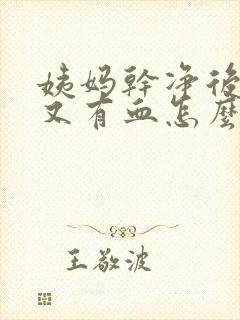 姨妈幹净後
又有血怎麽
王敬波